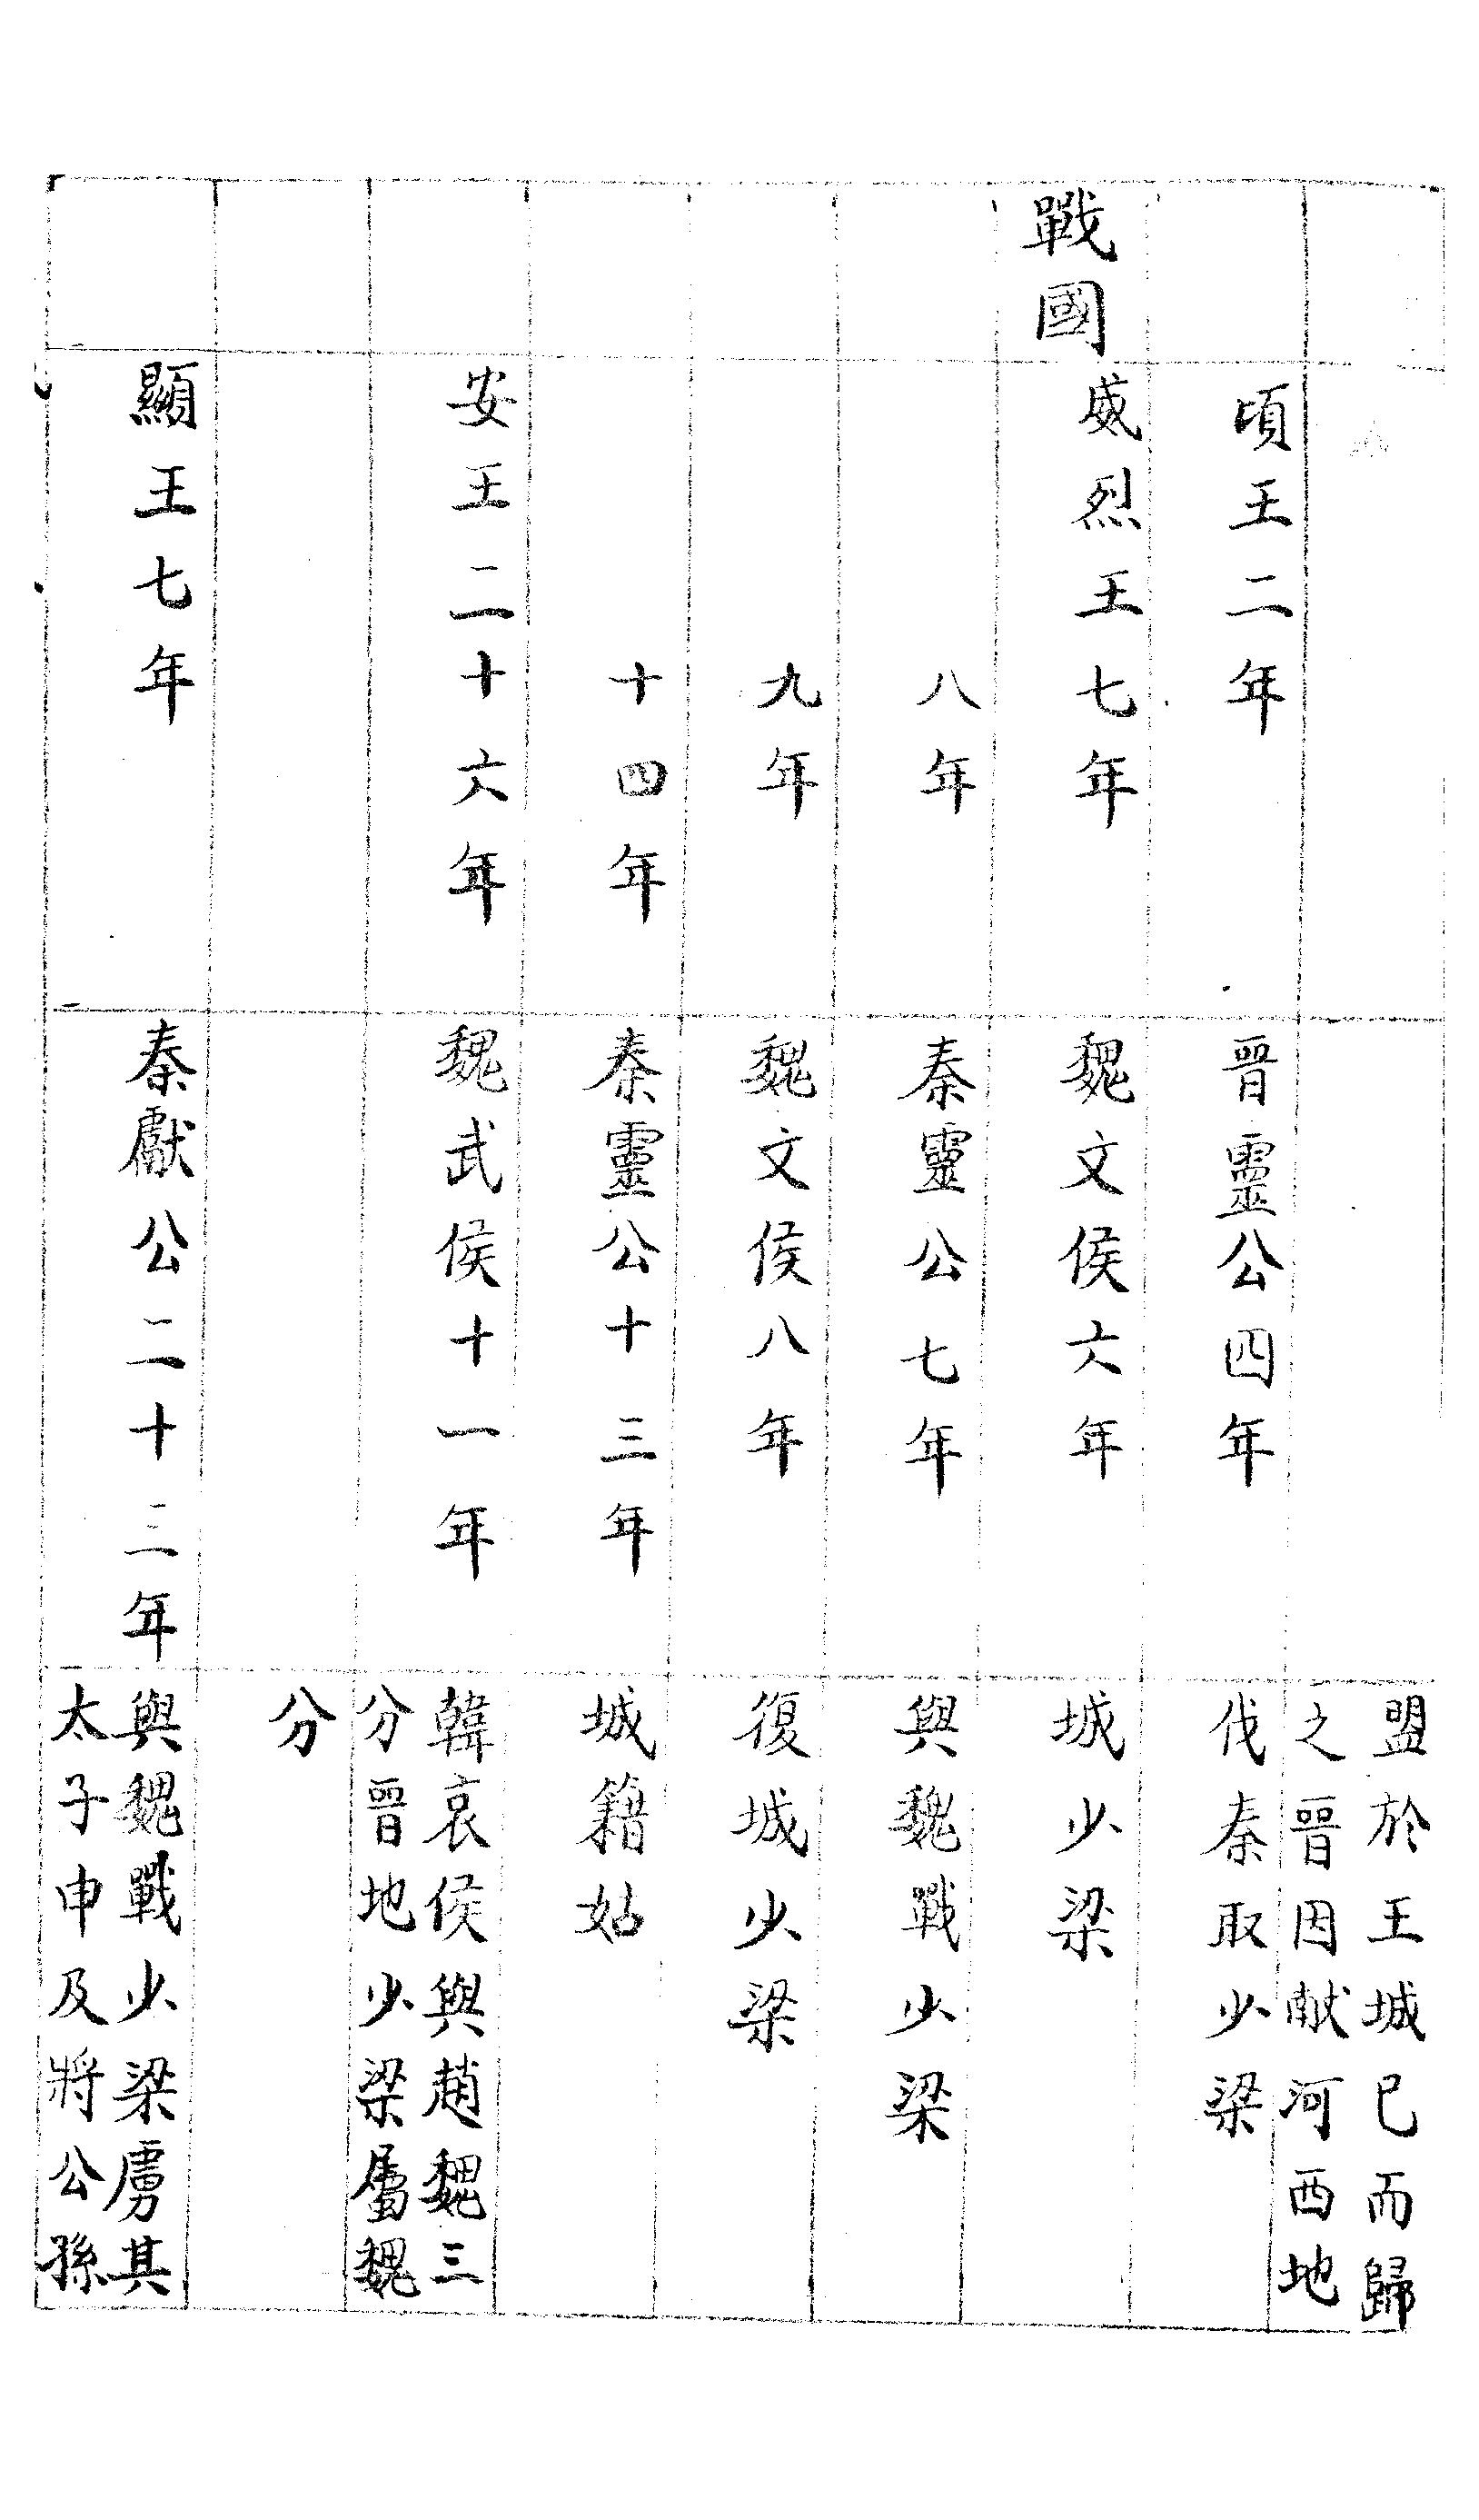 盟於王城已而歸
之晉因献河西地
頃王二年
晉靈公四年
伐秦取少梁
戰國
威烈王七年
魏文侯六年
城少梁
八年
秦靈公七年
與魏戰少梁
九年
魏文侯八年
復城少梁
十四年
秦靈公十三年
城籍姑
安王二十六年
魏武侯十一年
韓哀侯與趙魏三
分晉地少梁屬魏
分
顯王七年
秦獻公二十三年
與魏戰少梁虜其
太子申及將公孫